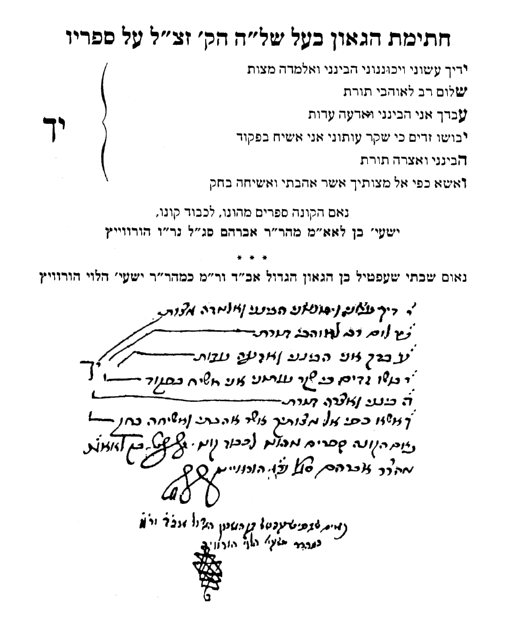 חתימת הגאון בעל של״ה הק׳ זצ״ל על ספריו
יד
ידיך עשוני ויכוננוני הבינני ואלמדה מצות
שלום רב לאוהבי תורת
עבדך אני הבינני ואדעה עדות
יבושו זדים כי שקר עותוני אני אשיח בפקוד
הבינני ואצרה תורת
ואשא כפי אל מצותיך אשר אהבתי ואשיחה בחק
נאם הקונה ספרים מהונו, לכבוד קונו,
ישעי׳ בן לאא״מ מהר״ר אברהם סג״ל נר״ו הורוויץ
* * *
נאום שבתי שעפטיל בן הגאון הגדול אב״ד ור״מ כמהר״ר ישעי׳ הלוי הורוויץ
יד
ידיך עשוני ויכוננוני הבינני ואלמדה מצות
שלום רב לאוהבי תורת
עבדך אני הבינני ואדעה עדות
יבושו זדים כי שקר עותוני אני אשיח בפקוד
הבינני ואצרה תורת
ואשא כפי אל מצותיך אשר אהבתי ואשיחה בחק
נאם הקונה ספרים מהונו לכבוד קונו
מהר״ר אברהם סג״ל הורוויץ
נאום שבתי שעפטיל בן הגאון הגדול אב״ד ור״מ
כמהר״ר ישעי׳ הלוי הורוויץ